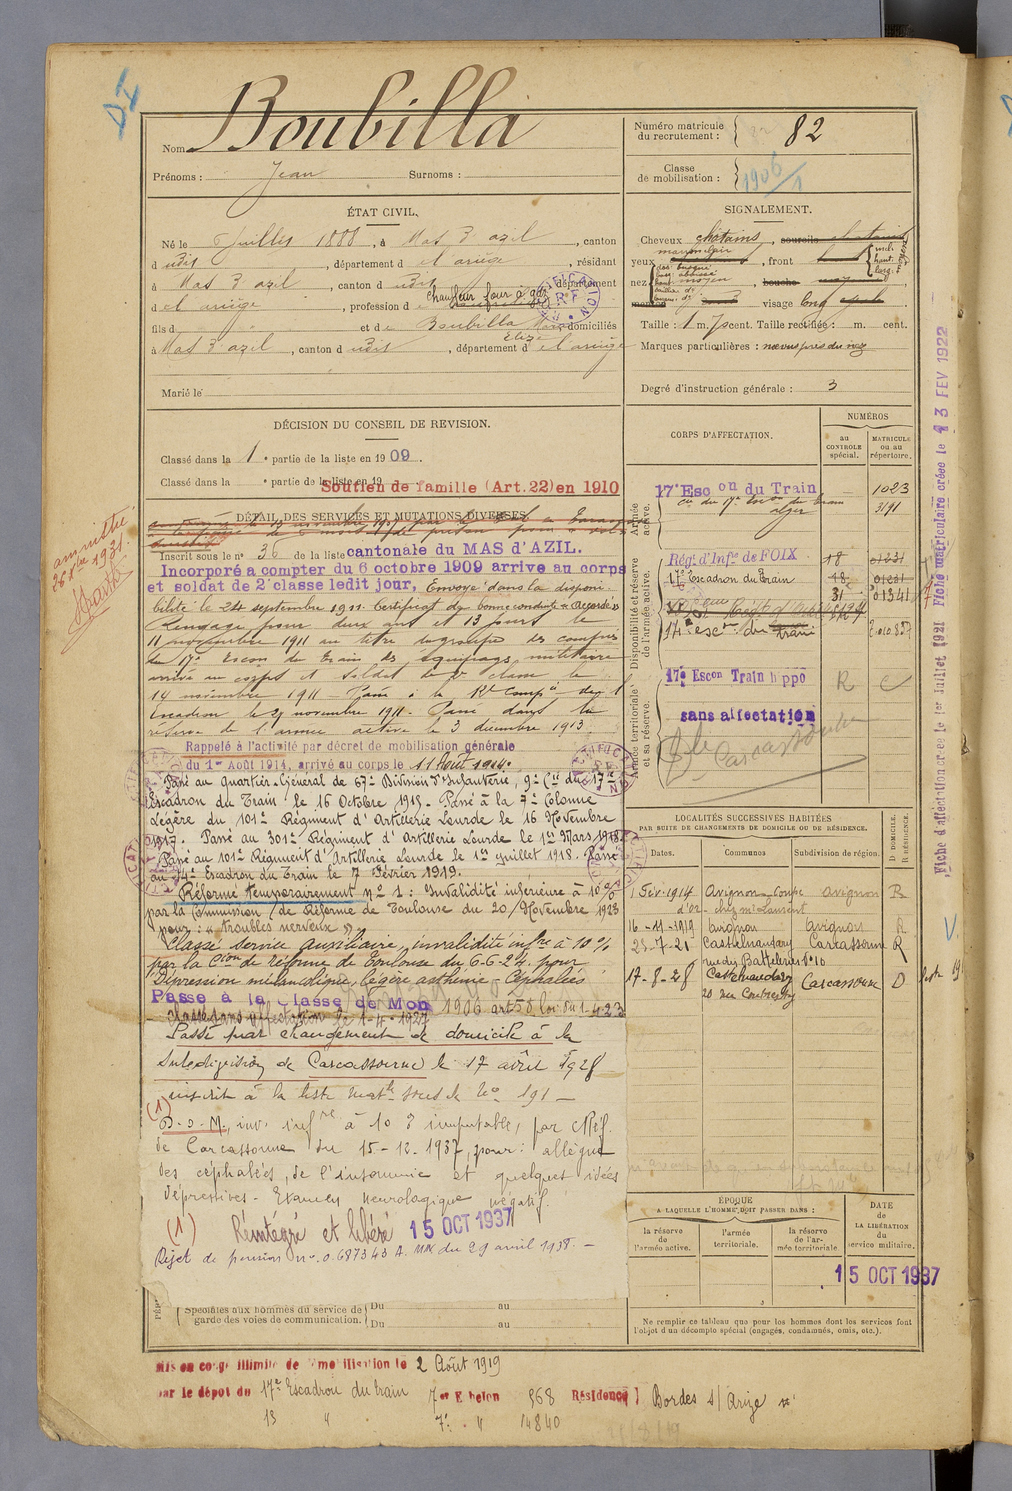 Nom Boubilla
Prénoms : Jean Surnoms :
ÉTAT CIVIL.
Né le 6 Juillet 1888, à Mas d'azil, canton
d udit, département d el ariège, résidant
à Mas d'azil, canton d udit, département
d el ariège, profession d e chauffeur four à gaz
fils d et d e Boubilla Marie Elize domiciliés
à Mas d'azil, canton d udit, département d el ariège
Marié le
DÉCISION DU CONSEIL DE REVISION.
Classé dans la 1e partie de la liste en 1909.
Classé dans la e partie de la liste en 19
Soutien de famille (Art. 22) en 1910
DÉTAIL DES SERVICES ET MUTATIONS DIVERSES.
Inscrit sous le no 36 de la liste cantonale du MAS d'AZIL.
Incorporé a compter du 6 octobre 1909 arrivé au corps
et soldat de 2e classe ledit jour, Envoyé dans la disponi-
bilité le 24 septembre 1911. Certificat de bonne conduite "Accordé"
Rengagé pour deux ans et 13 jours le
11 novembre 1911 au titre du groupe des compies
du 17e Escon du train des équipages militaire
arrivé au corps et soldat de 2e classe le
14 novembre 1911 - Passé à la
Escadron le 21 novembre 1911. Passé dans la
réserve de l'armée active le 3 décembre 1913.
Rappelé à l'activité par décret de mobilisation générale
du 1er Août 1914, arrivé au corps le 11 Août 1914.
Passé au Quartier-Général de 67e Division d'Infanterie, 9e Cie du 17e
Escadron du Train le 16 Octobre 1915. Passé à la 7e Colonne
Légère du 101e Régiment d'Artillerie Lourde le 16 Novembre
1917. Passé au 301e Régiment d'Artillerie Lourde le 1er Mars 1918.
Passé au 101e Régiment d'Artillerie Lourde le 1er Juillet 1918. Passé
au 14e Escadron du Train le 7 Février 1919.
Réformé temporairement no 1 : Invalidité inférieure à 10 %
par la Commission de Réforme de Toulouse du 20 Novembre 1923
pour : "troubles nerveux"
Classé Service Auxiliaire, invalidité infre à 10 %
par la Cion de réforme de Toulouse du 6-6-24 pour
Dépression mélancolique, légère asthénie Céphalées
Passé à la Classe de Mon 1906 art 58 loi du 1-4-23
Classé sans affectation le 1-4-1927
Passé par changement de domicile à la
subdivision de Carcassonne le 17 avril 1928
inscrit à la liste matle sous le No 191 -
(1)
D.D.M., inv. infre à 10 % imputable, par C Réf.
de Carcassonne du 15-12-1937, pour : allègue
des céphalées, de l'insomnie et quelques idées
dépressives - Examen neurologique négatif.
(1) Réintégré et libéré 15 OCT 1937
Rejet de pension no 0.687343 A. MM du 29 avril 1938. -
Spéciales aux hommes du service de
garde des voies de communication.
Du au
Du au
Mis en congé illimité de démobilisation le 2 Août 1919
par le dépôt du 17e Escadron du train 7er Echelon 568 Résidence Bordes s/ Arize
13 " 7e " 14840
amnistié
Numéro matricule
du recrutement : 82
Classe
de mobilisation : 1906/1
SIGNALEMENT.
Cheveux chatains, sourcils chatains
yeux marron clair, front
nez moyen, bouche
menton visage long
Taille : 1 m. 70 cent. Taille rectifiée : m. cent.
Marques particulières : nœvus près du nez
Degré d'instruction générale : 3
CORPS D'AFFECTATION.
NUMÉROS
au
CONTRÔLE
spécial.
MATRICULE
ou au
répertoire.
Armée
active.
17e Escon du Train 1023
cie du 17e Escon du train alger 3191
Disponibilité et réserve
de l'armée active.
Régt d'Infie de FOIX 18
17e Escadron du Train 18
31 01341
14e escon du train
Armée territoriale
et sa réserve.
17e Escon Train hippo R C
sans affectation
Carcassonne
LOCALITÉS SUCCESSIVES HABITÉES
PAR SUITE DE CHANGEMENTS DE DOMICILE OU DE RÉSIDENCE.
Dates. Communes Subdivision de région.
D. DOMICILE.
R. RÉSIDENCE.
1 Fév. 1914 Avignon coupe avignon R
d'or - chez Mr Laurent
16-11-1919 Avignon Avignon R
23-7-21 Castelnaudary Carcassonne R
rue du Battelerie No 10
17-8-28 Castelnaudary Carcassonne D
20 rue
ÉPOQUE
A LAQUELLE L'HOMME DOIT PASSER DANS :
la réserve
de
l'armée active.
l'armée
territoriale.
la réserve
de l'ar-
mée territoriale.
DATE
de
LA LIBÉRATION
du
service militaire.
15 OCT 1937
Ne remplir ce tableau que pour les hommes dont les services font
l'objet d'un décompte spécial (engagés, condamnés, omis, etc.).
Fiche d'affectation créée le 1er Juillet 1921 Fiche matriculaire créée le 13 FEV 1922